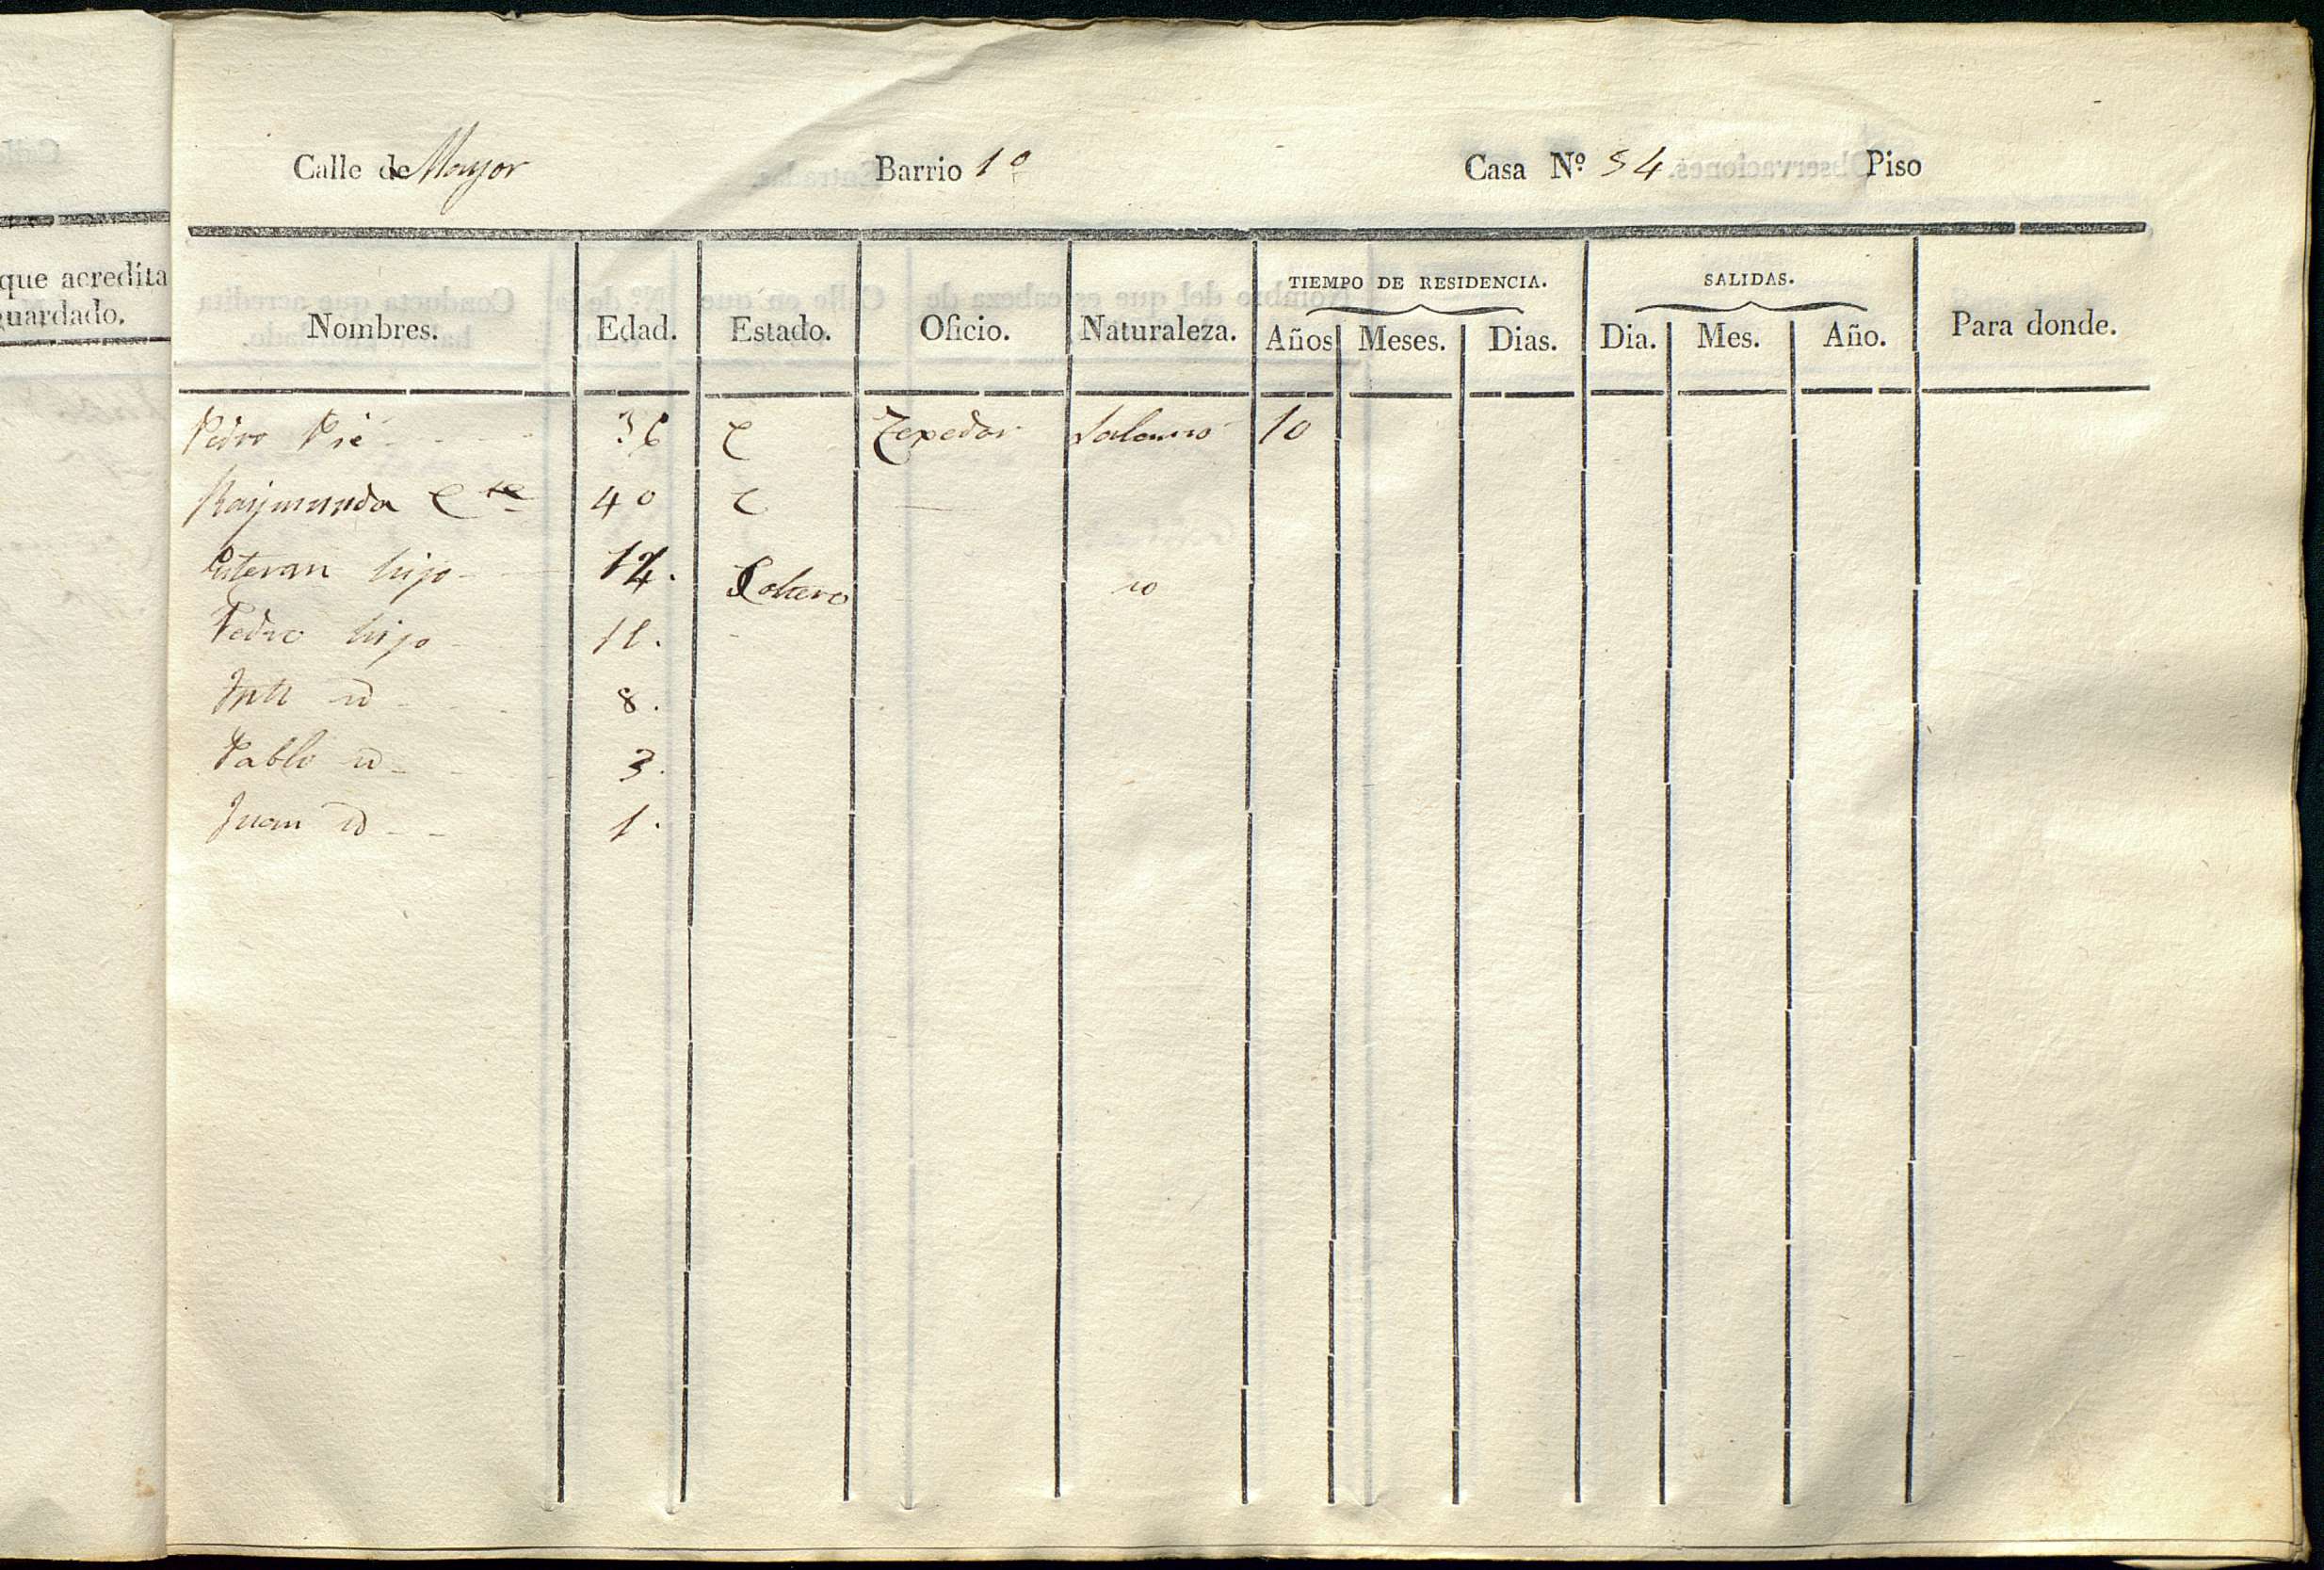 Calle de Mayor Barrio 1º Casa Nº 54. Piso
que acredita
guardado.
TIEMPO DE RESIDENCIA. SALIDAS.
Nombres. Edad. Estado. Oficio. Naturaleza. Años Meses. Dias. Dia. Mes. Año. Para donde.
Pedro Pié 36 C Texedor Salomó 10
Raymunda C 40 C
Estevan hijo 14. Soltero id
Pedro hijo 11.
id 8.
Pablo id 3.
Juan id 1.